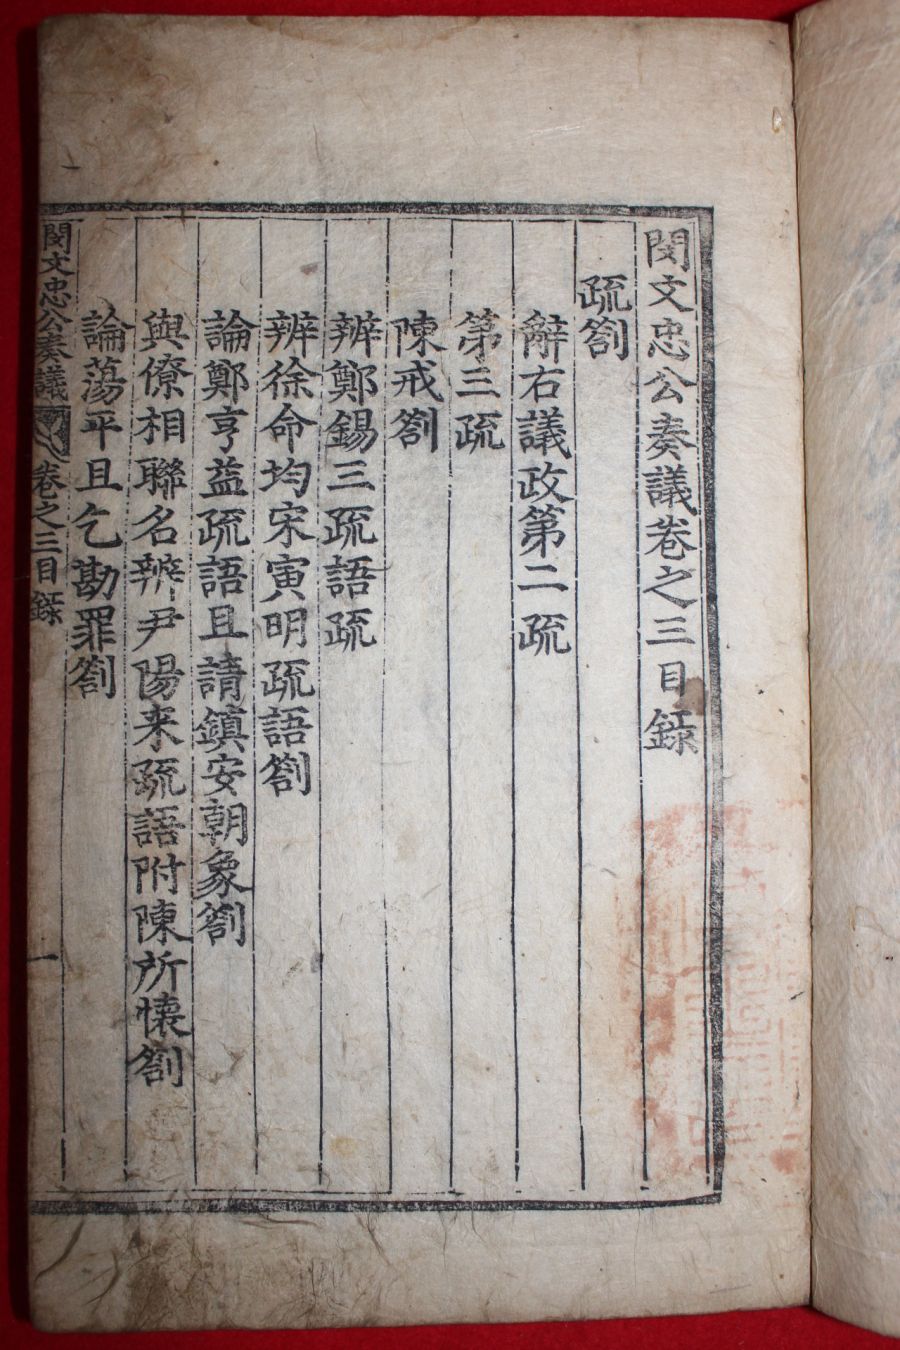 閔文忠公奏議卷之三目錄
疏劄
辭右議政第二疏
第三疏
陳戒劄
辨鄭錫三疏語疏
辨徐命均宋寅明疏語劄
論鄭亨益疏語且請鎮安朝象劄
與僚相聯名辨尹陽来疏語附陳所懷劄
論蕩平且乞勘罪劄
閔文忠公奏議 卷之三目錄 一